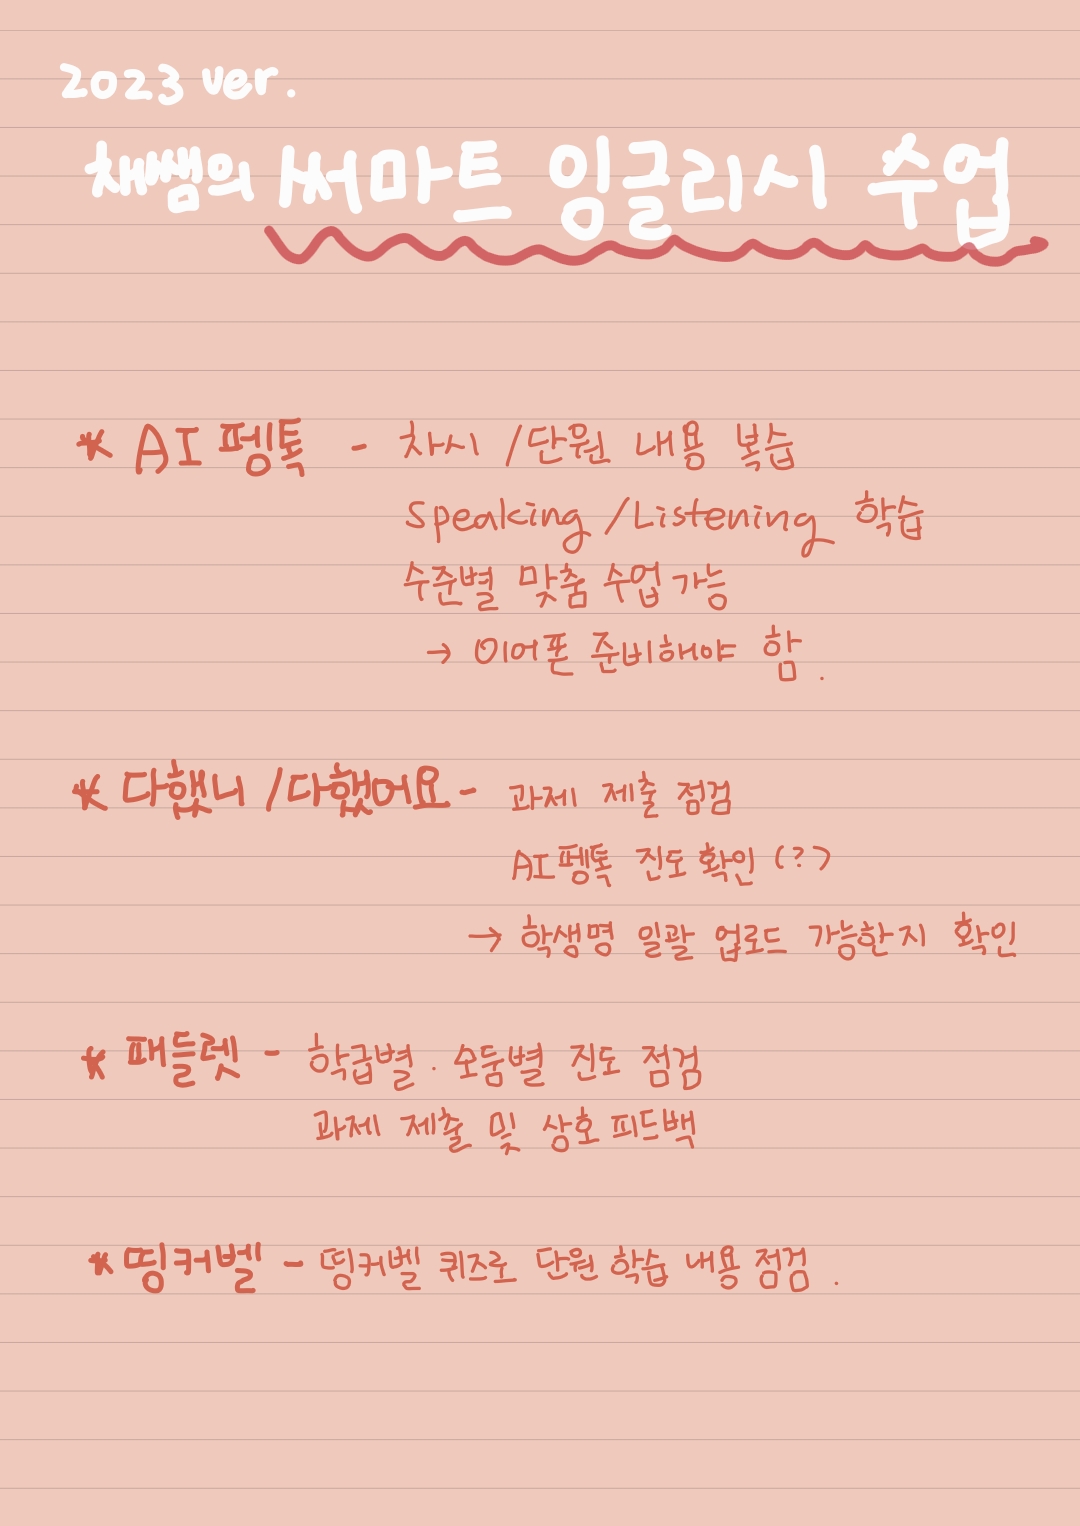 2023 ver.
채쌤의 써마트 잉글리시 수업
* AI 펭톡 - 차시 / 단원 내용 복습
Speaking / Listening 학습
수준별 맞춤 수업 가능
→ 이어폰 준비해야 함.
* 다했니 / 다했어요 - 과제 제출 점검
AI 펭톡 진도 확인 (?)
→ 학생명 일괄 업로드 가능한지 확인
* 패들렛 - 학급별 · 모둠별 진도 점검
과제 제출 및 상호 피드백
* 띵커벨 - 띵커벨 퀴즈로 단원 학습 내용 점검.